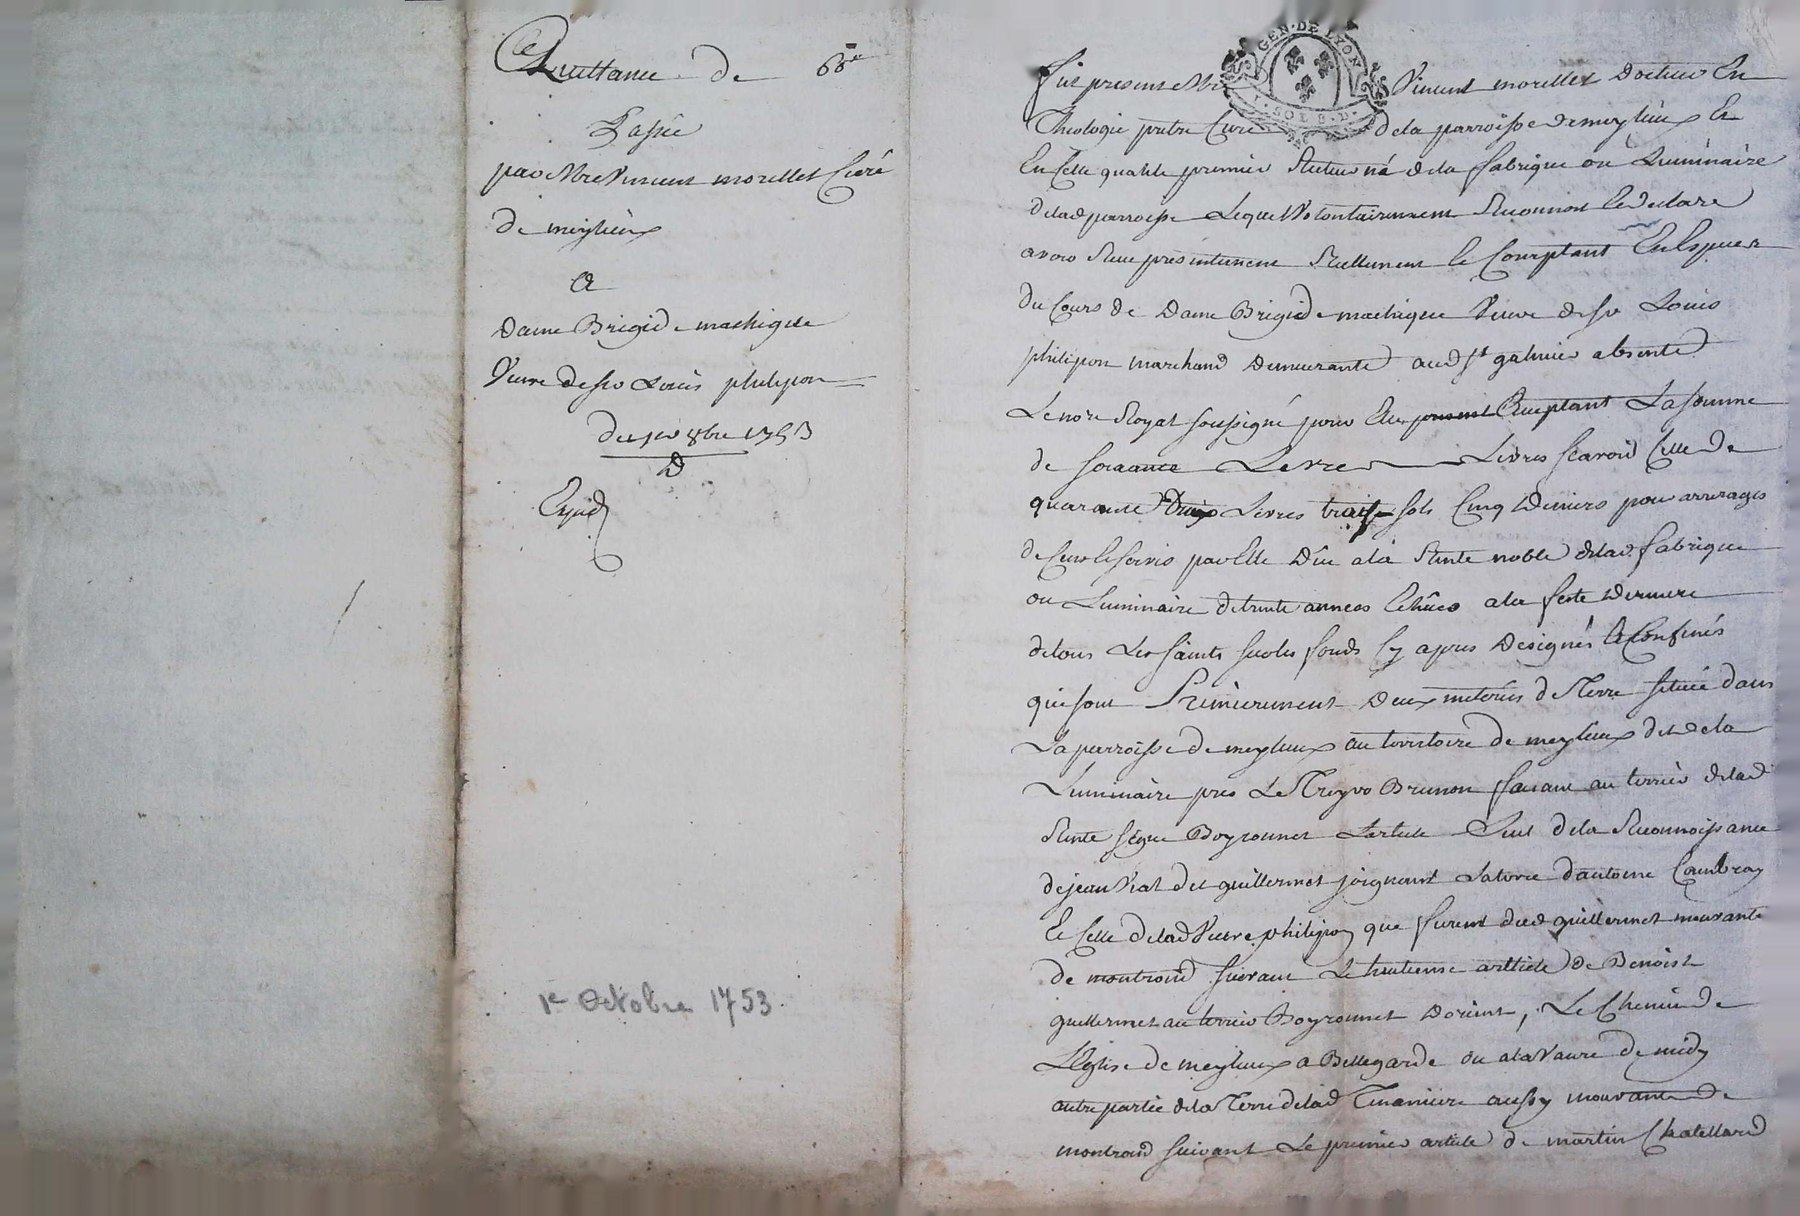 Quittance de 66ll
Passée
par Mre Vincent morellet Curé
de meylieux
A
Dame Brigide machique
Veuve de sr Louis philipon
du 1er 8bre 1753
Expéd
1e Octobre 1753
GEN. DE LYON
Fut present Mre Vincent morellet Docteur En
Theologie pretre Curé de la parroisse de meylieux Et
En Cette qualité premier Recteur né de la fabrique ou Luminaire
de lad parroisse Lequel Volontairement Reconnoit Et declare
avoir Receu presentement Reellement et Comptant En Especes
du Cours de Dame Brigide machique Veuve de sr Louis
philipon marchand Demeurante aud st galmier absente
Le nore Royal soussigné pour Elle Acceptant La somme
de soixante Livres Scavoir Celle de
quarante Livres treise sols Cinq Deniers pour arrerages
de Cens et servis par Elle Dûe a la Rente noble de lad fabrique
ou Luminaire de trente années Echûes a la feste Derniere
de tous Les saints sur les fonds Cy apres Designés Et Confinés
qui sont Premierement Deux meterées de Terre située dans
La parroisse de meylieux au territoire de meylieux dit de la
Luminaire pres Le Treyvo Brunon faisant au terrier de lad
Rente signé Boyronnet Larticle de la Reconnoissance
de jean Vial dit guillermet joignant La terre d'antoine Combray
Et Celle de lad Veuve philipon que furent dud guillermet mouvante
de montrond suivant Le huitieme article de Benoist
guillermet au terrier Boyronnet Dorient, Le Chemin de
LEglise de meylieux a Bellegarde ou a la Vaure de midy
autre partie de la Terre de lad Tenanciere aussy mouvante de
montrond suivant Le premier article de martin Chatellard